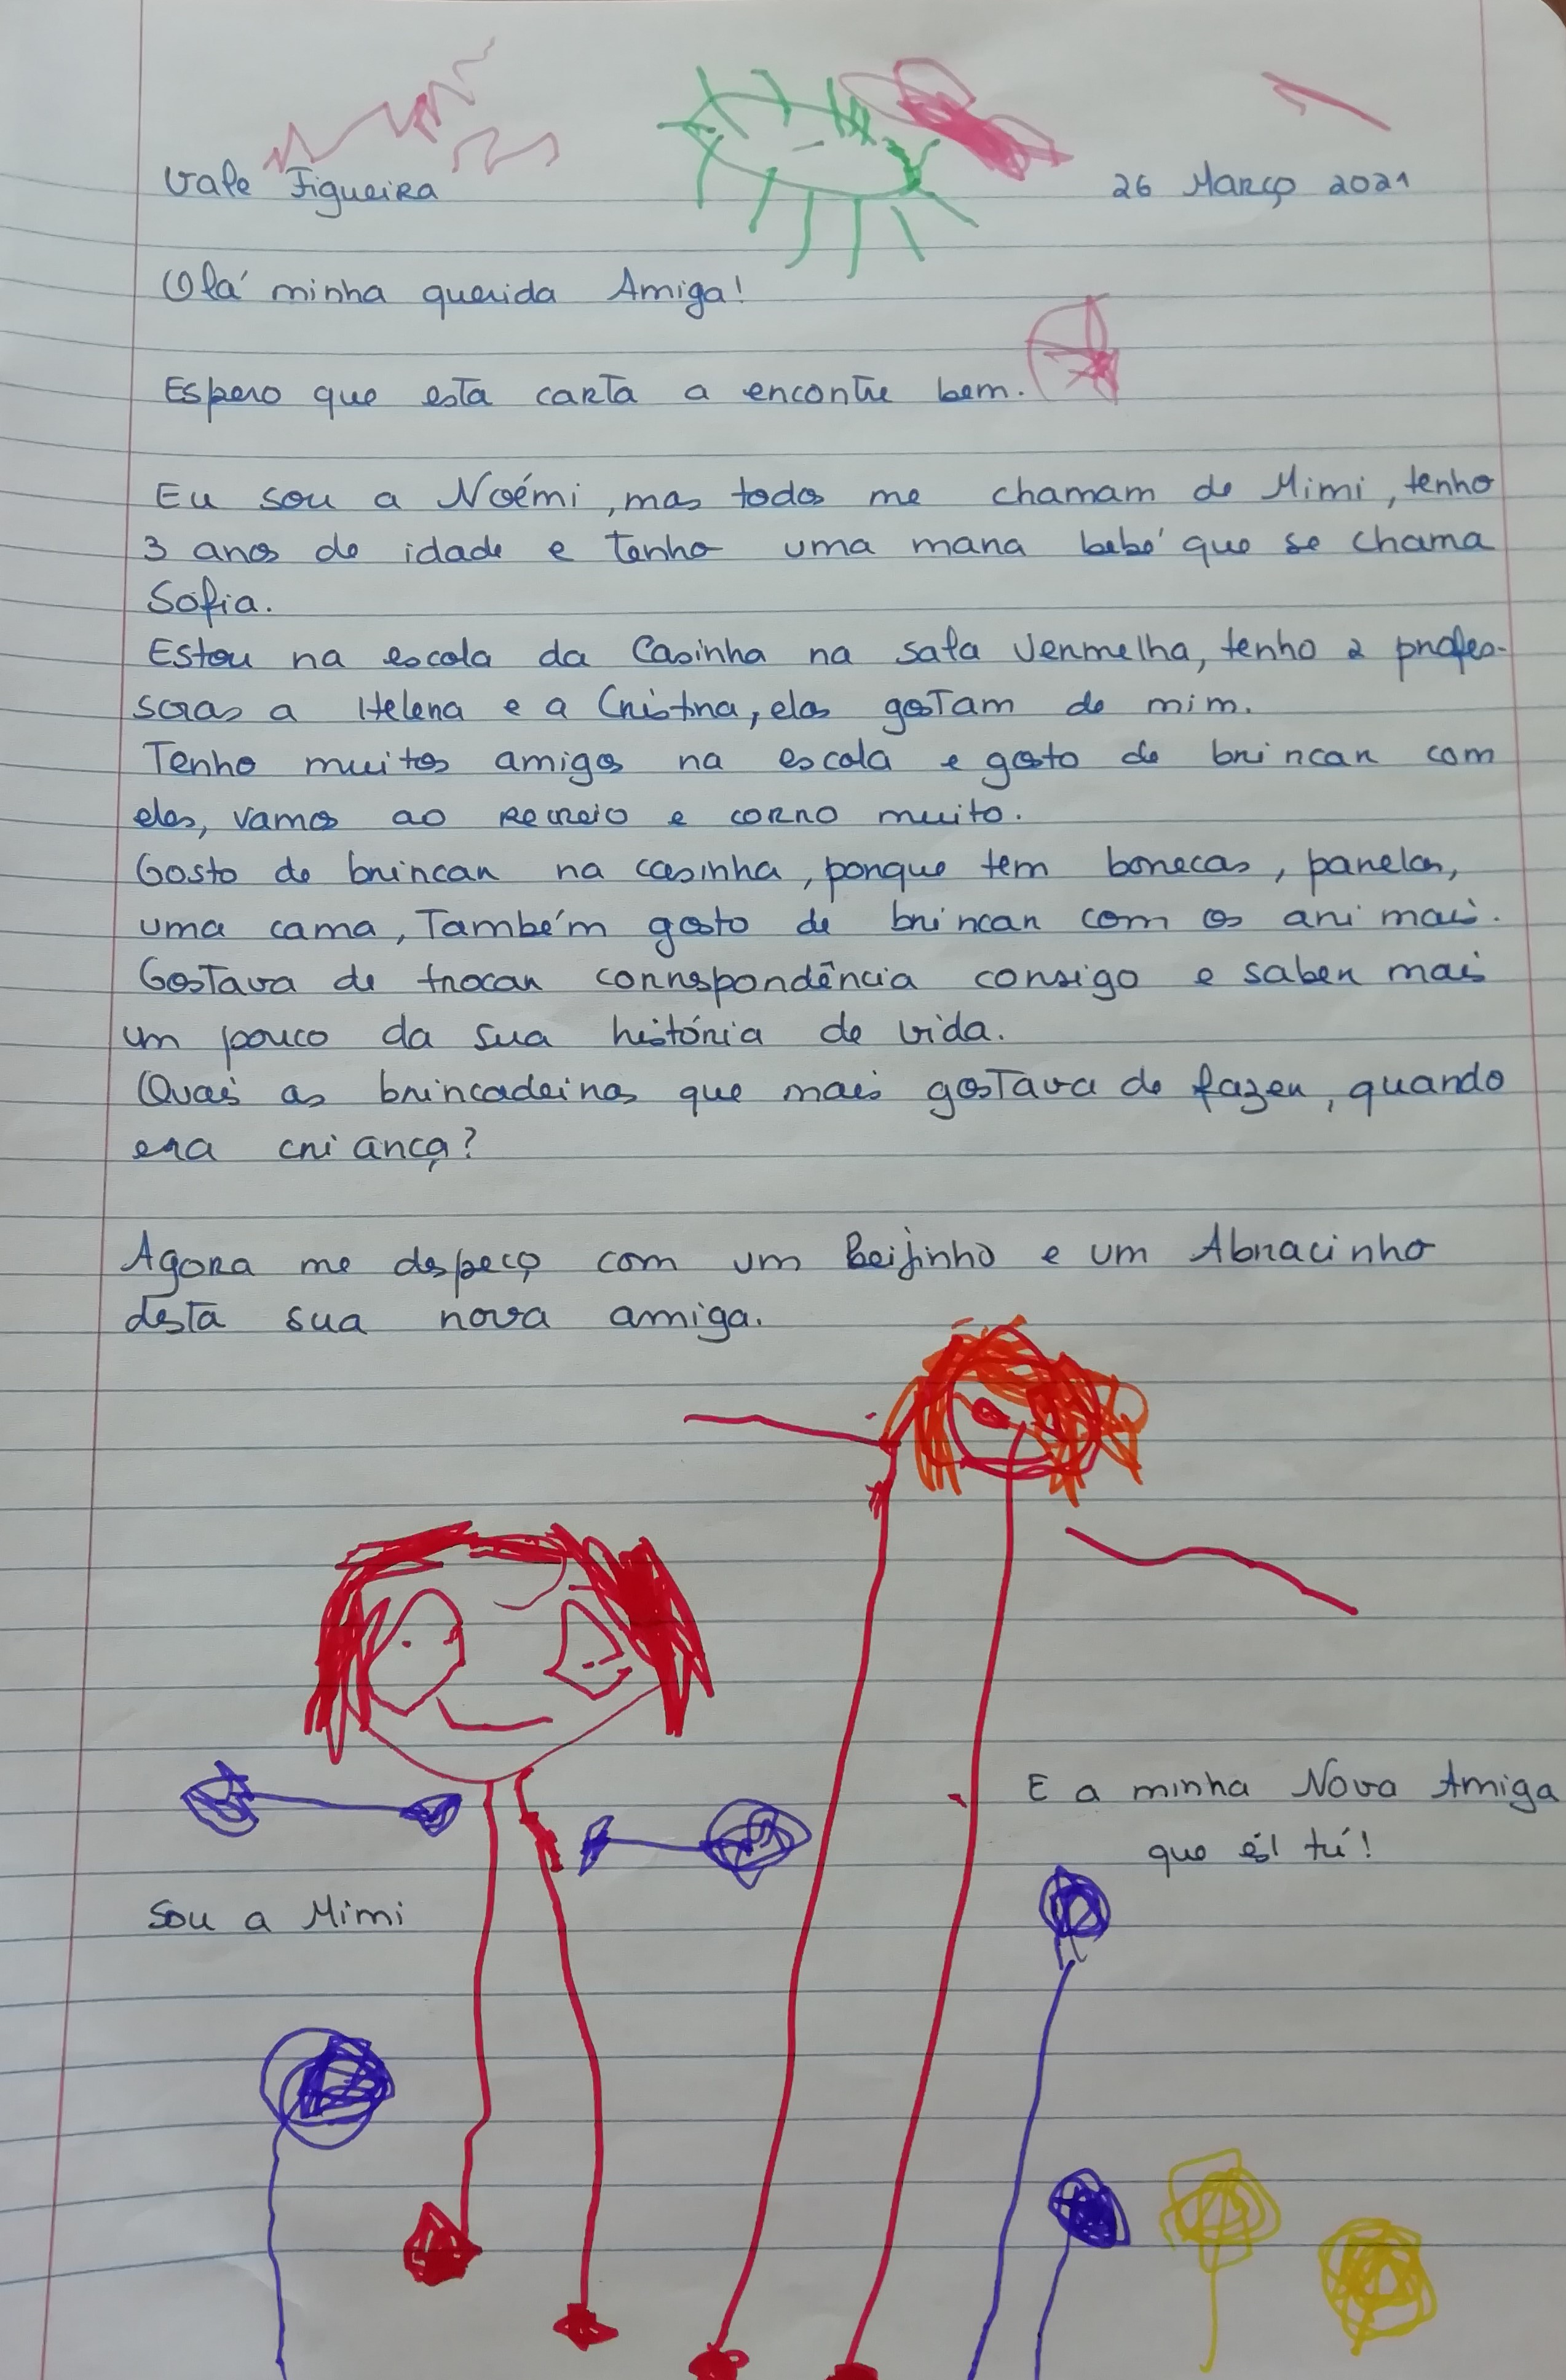 Vale Figueira
26 Março 2021
Olá minha querida Amiga!
Espero que esta carta a encontre bem.
Eu sou a Noémi, mas todos me chamam de Mimi, tenho
3 anos de idade e tenho uma mana bebé que se chama
Sofia.
Estou na escola da Casinha na sala Vermelha, tenho 2 profes-
soras a Helena e a Cristina, elas gostam de mim.
Tenho muitos amigos na escola e gosto de brincar com
eles, vamos ao recreio e corro muito.
Gosto de brincar na casinha, porque tem bonecas, panelas,
uma cama, Também gosto de brincar com os animais.
Gostava de trocar correspondência consigo e saber mais
um pouco da sua história de vida.
Quais as brincadeiras que mais gostava de fazer, quando
era criança?
Agora me despeço com um Beijinho e um Abracinho
desta sua nova amiga.
E a minha Nova Amiga
que és tú!
Sou a Mimi